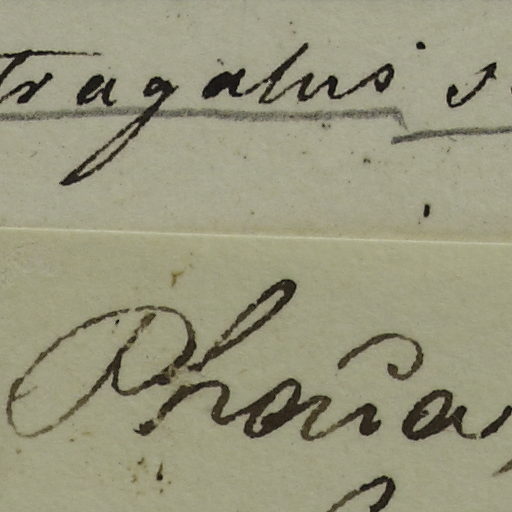 tragalus s
Phaca,